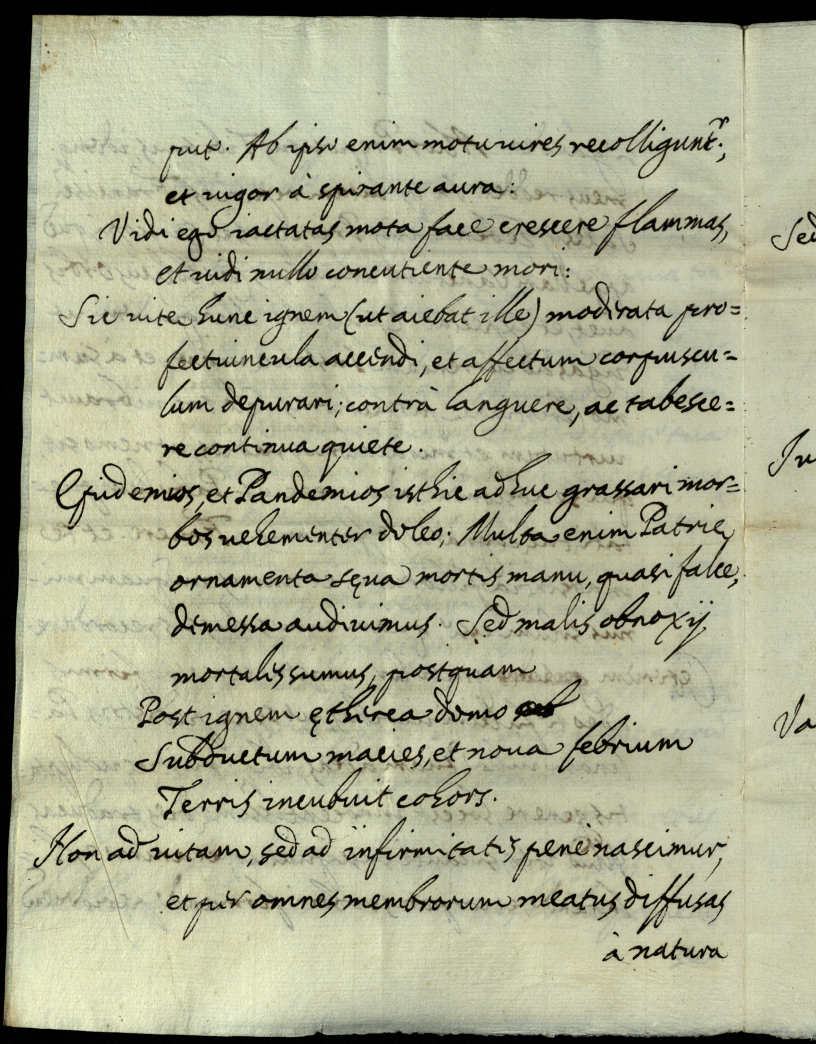 put. Ab ipso enim motu vires recolligunt.r;
et vigor à spirante aura:
Vidi ego iactatas mota face crescere flammas,
et vidi nullo concutiente mori:
Sic vitę hunc ignem (ut aiebat ille) moderata pro=
fectiuncula accendi, et affectum corpuscu=
lum depurari; contrà languere, ac tabesce=
re continua quiete.
Epidemios, et Pandemios isthic adhuc grassari mor=
bos vehementer doleo; Multa enim Patrię
ornamenta sęua mortis manu, quasi falce,
demessa audivimus. Sed malis obnoxij
mortales sumus, postquam
Post ignem ętherea domo
Subductum macies, et nova febrium
Terris incubuit cohors.
Non ad vitam, sed ad infirmitatis pene nascimur,
et per omnes membrorum meatus diffusas
à natura
Sed
Va